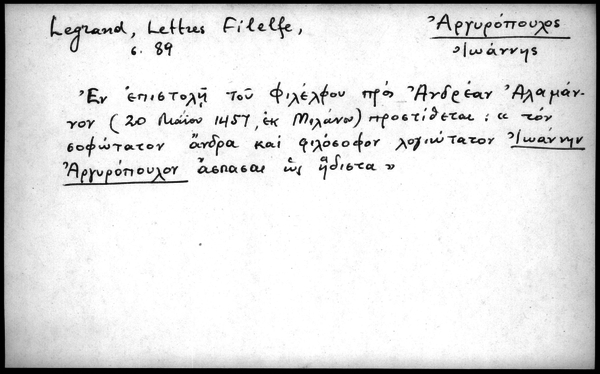 Legrand, Lettres Filelfe,
σ. 89
Ἀργυρόπουλος
Ἰωάννης
Ἐν ἐπιστολῇ τοῦ Φιλέλφου πρὸς Ἀνδρέαν Ἀλαμάν-
νον (20 Μαΐου 1457, ἐκ Μιλάνου) προστίθεται : « τὸν
σοφώτατον ἄνδρα καὶ φιλόσοφον λογιώτατον Ἰωάννην
Ἀργυρόπουλον ἄσπασαι ὡς ἥδιστα »